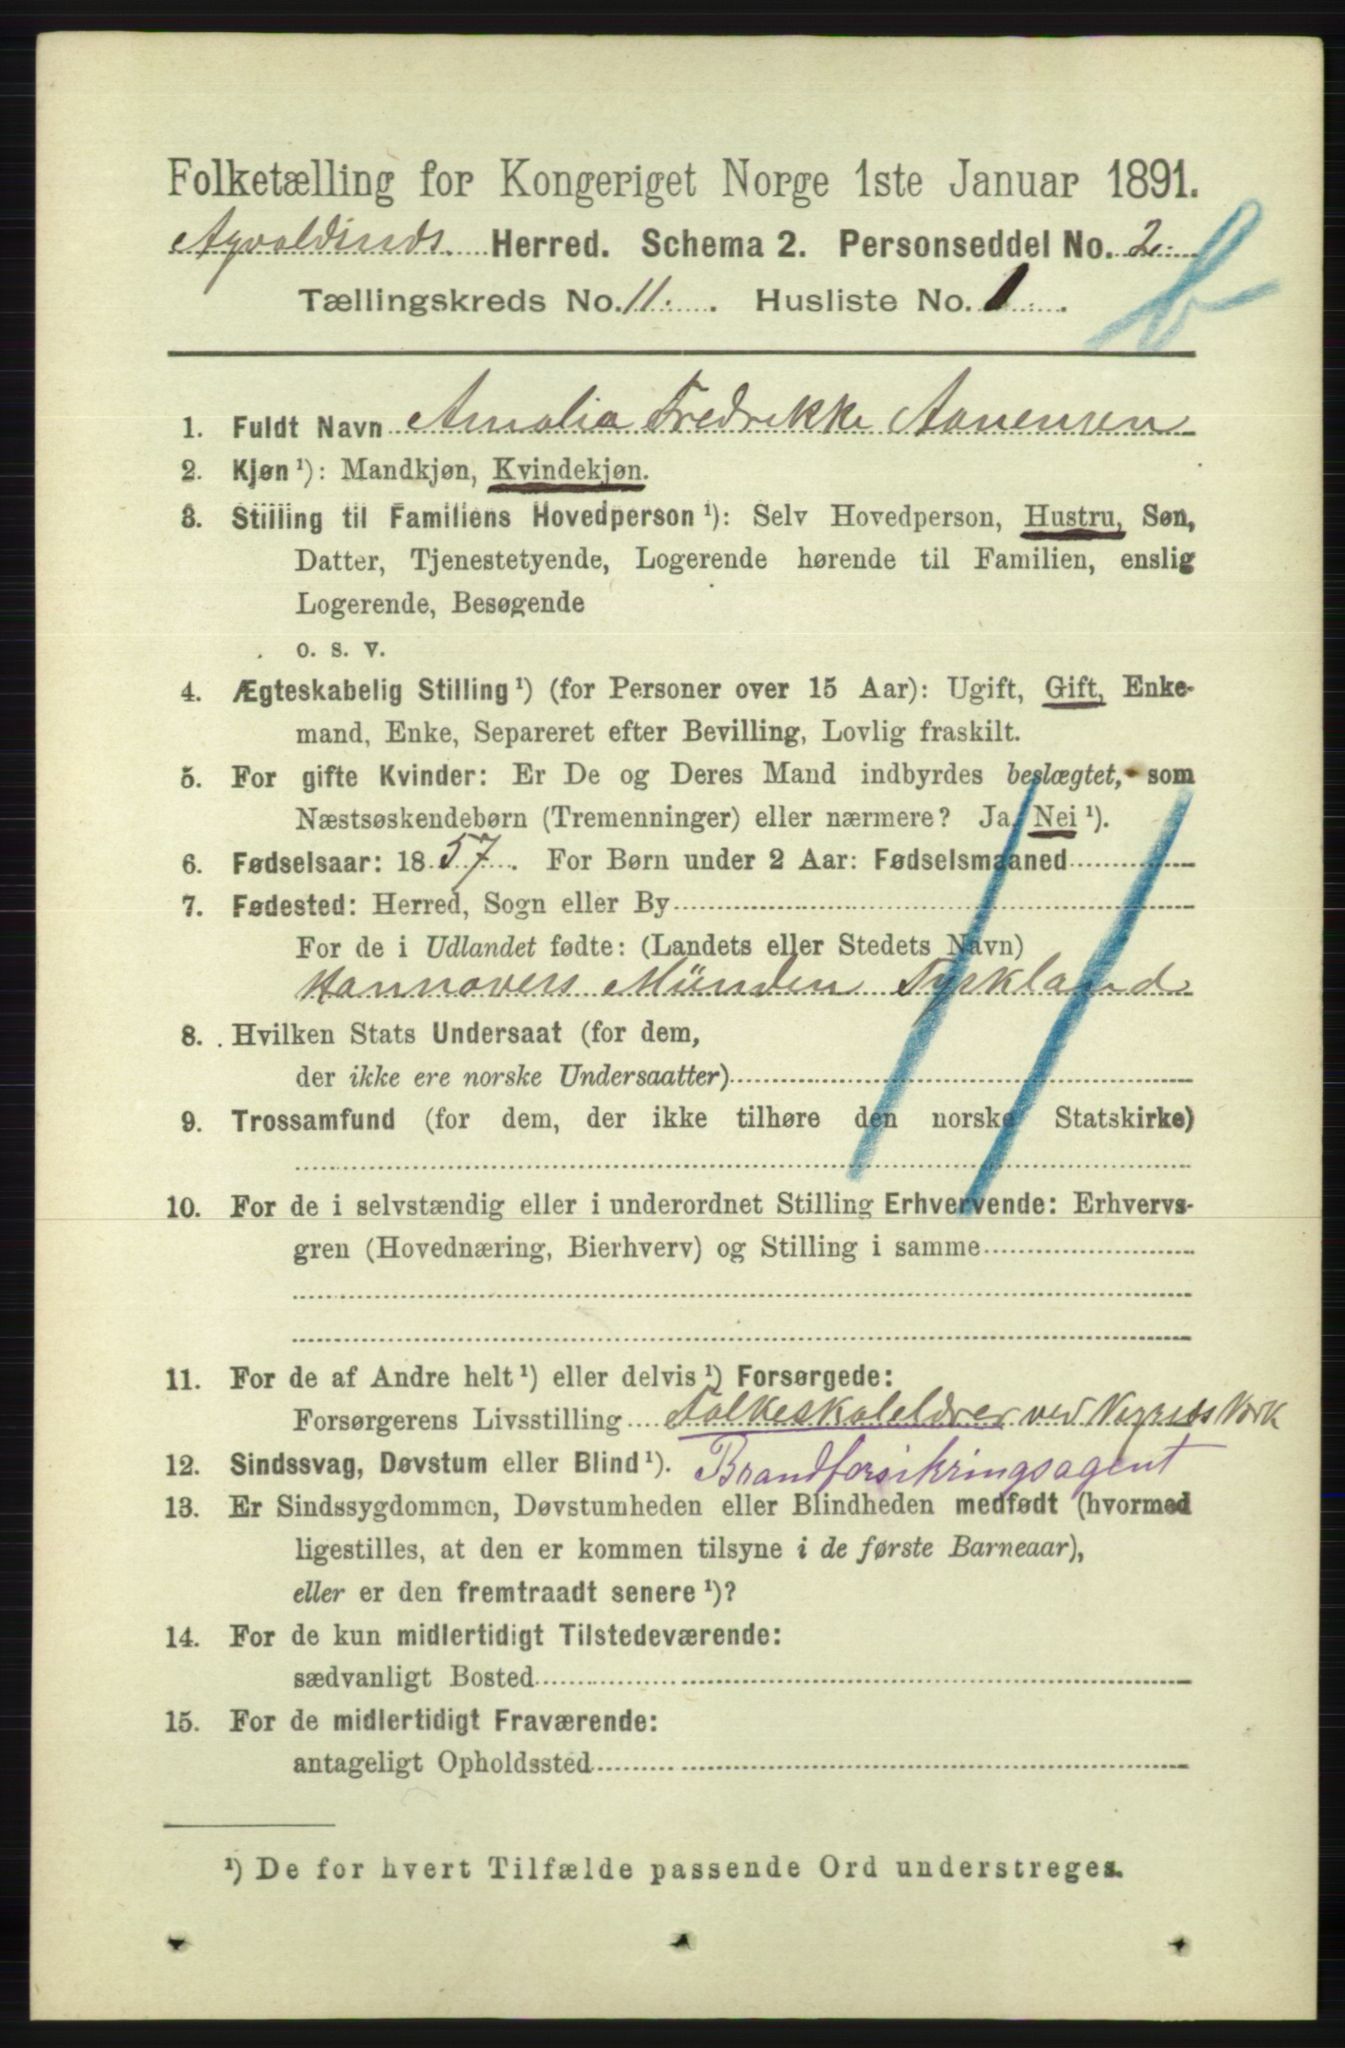 Folketælling for Kongeriget Norge 1ste Januar 1891.
Herred. Schema 2. Personseddel No. 2.
Tællingskreds No. 11. Husliste No. 1.
1. Fuldt Navn Amalia Fredrikke Aanensen
2. Kjøn ¹): Mandkjøn, Kvindekjøn.
3. Stilling til Familiens Hovedperson ¹): Selv Hovedperson, Hustru, Søn,
Datter, Tjenestetyende, Logerende hørende til Familien, enslig
Logerende, Besøgende
o. s. v.
4. Ægteskabelig Stilling ¹) (for Personer over 15 Aar): Ugift, Gift, Enke-
mand, Enke, Separeret efter Bevilling, Lovlig fraskilt.
5. For gifte Kvinder: Er De og Deres Mand indbyrdes beslægtet, som
Næstsøskendebørn (Tremenninger) eller nærmere? Ja, Nei ¹).
6. Fødselsaar: 1857. For Børn under 2 Aar: Fødselsmaaned
7. Fødested: Herred, Sogn eller By
For de i Udlandet fødte: (Landets eller Stedets Navn)
Hannovers Münden Tyskland
8. Hvilken Stats Undersaat (for dem,
der ikke ere norske Undersaatter)
9. Trossamfund (for dem, der ikke tilhøre den norske Statskirke)
10. For de i selvstændig eller i underordnet Stilling Erhvervende: Erhvervs-
gren (Hovednæring, Bierhverv) og Stilling i samme
11. For de af Andre helt ¹) eller delvis ¹) Forsørgede:
Forsørgerens Livsstilling Folkeskolelærer ved Verk
12. Sindssvag, Døvstum eller Blind ¹). Brandforsikringsagent
13. Er Sindssygdommen, Døvstumheden eller Blindheden medfødt (hvormed
ligestilles, at den er kommen tilsyne i de første Barneaar),
eller er den fremtraadt senere ¹)?
14. For de kun midlertidigt Tilstedeværende:
sædvanligt Bosted
15. For de midlertidigt Fraværende:
antageligt Opholdssted
¹) De for hvert Tilfælde passende Ord understreges.